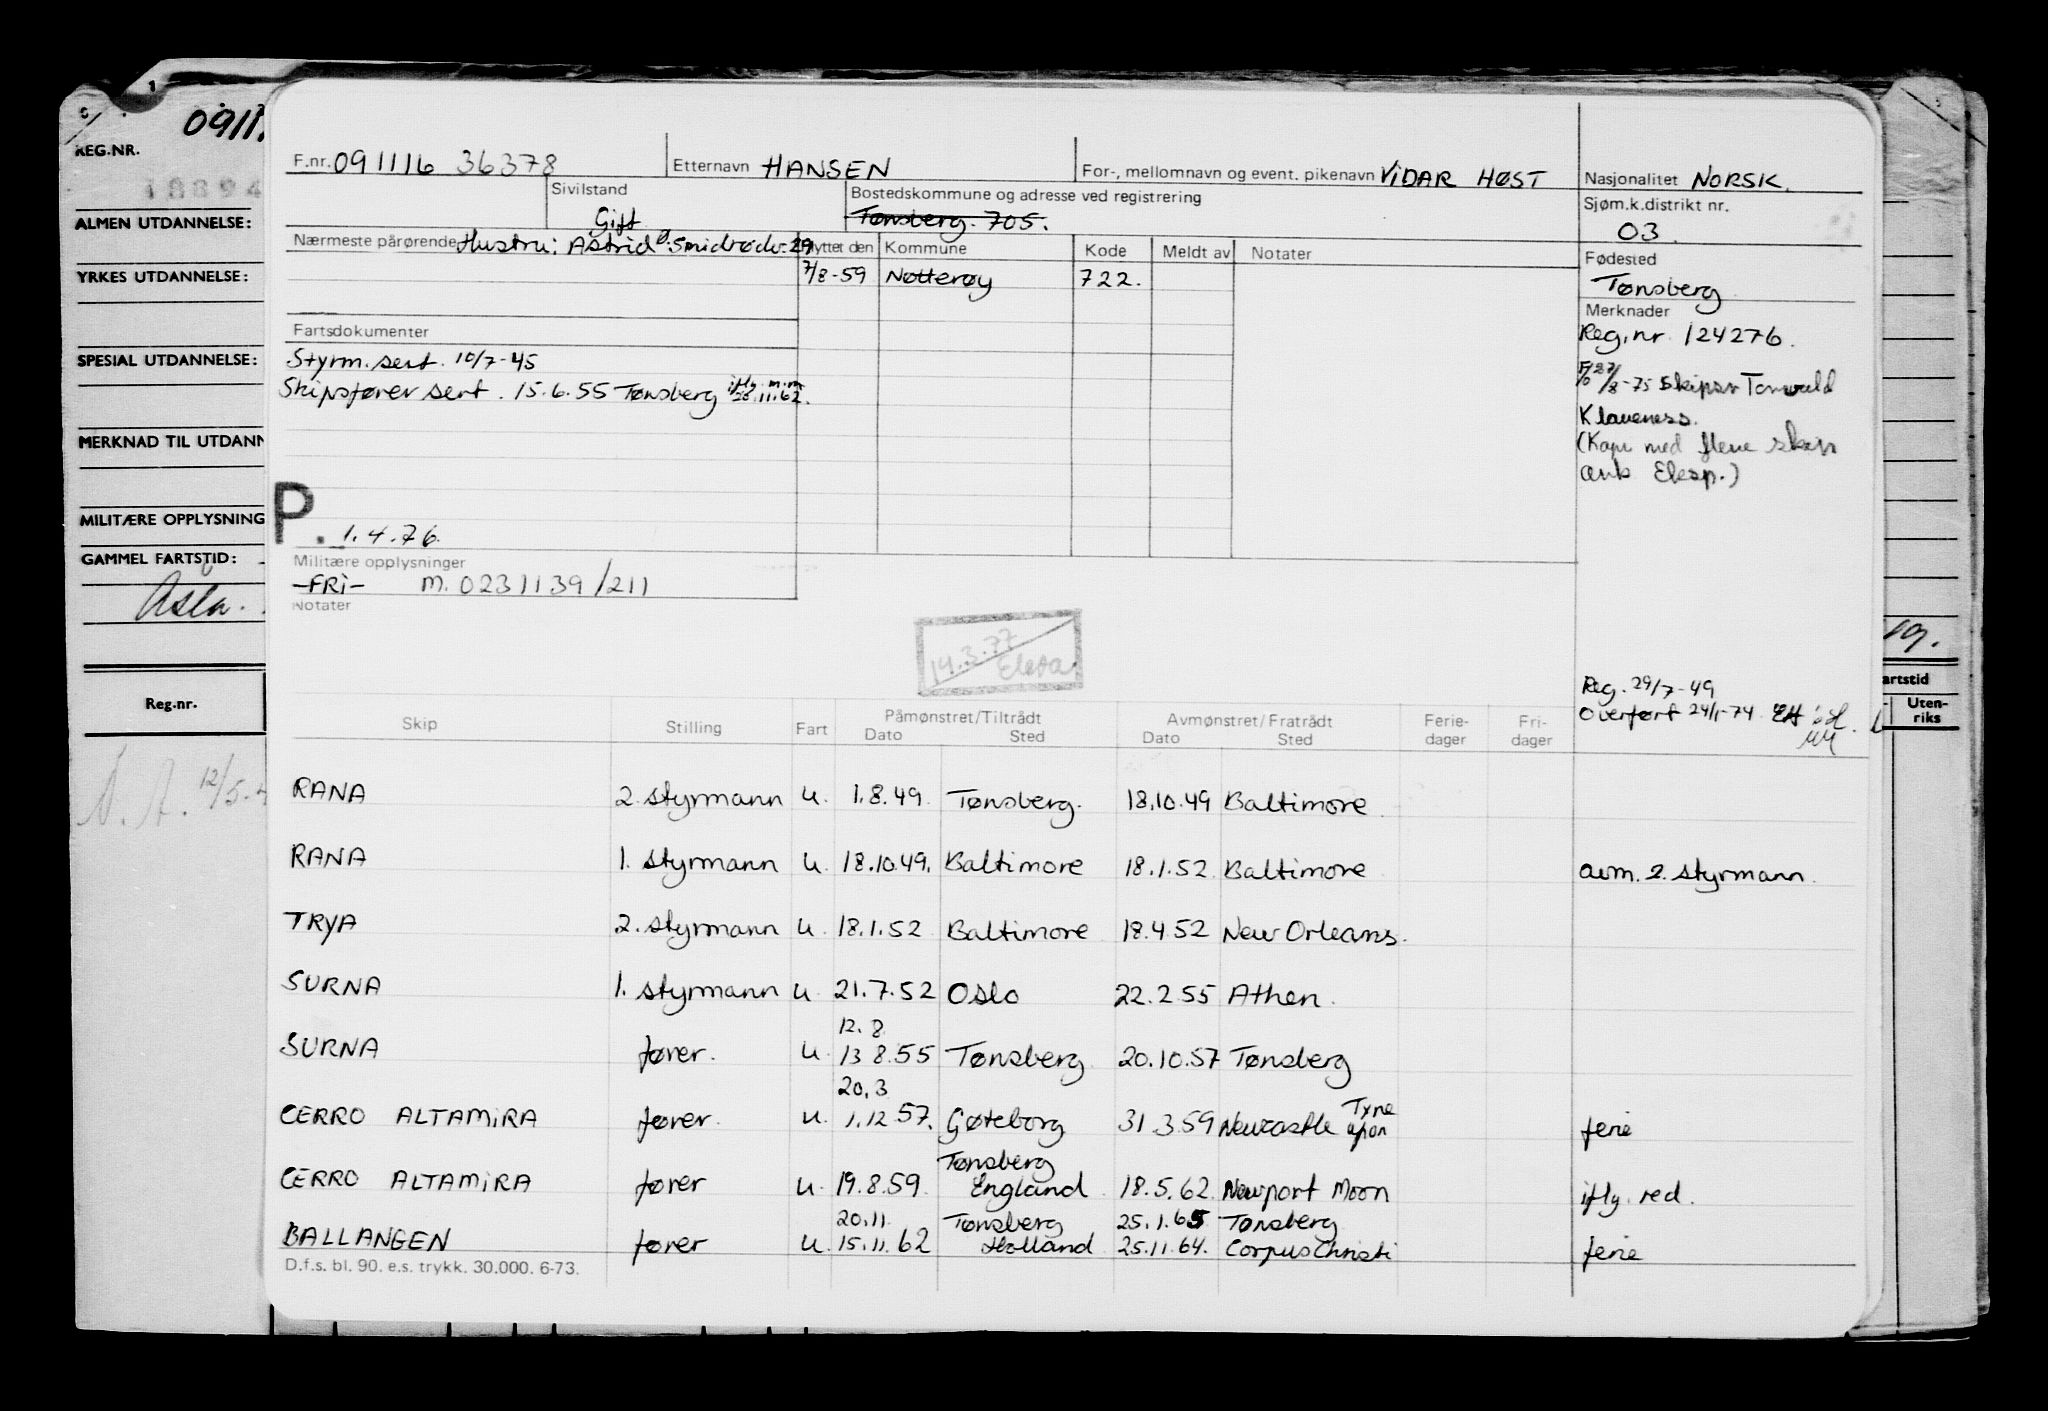 0911
REG.NR.
18894
ALMEN UTDANNELSE:
YRKES UTDANNELSE:
SPESIAL UTDANNELSE:
MERKNAD TIL UTDANN
MILITÆRE OPPLYSNING
GAMMEL FARTSTID:
Reg.nr.
12/5-4
F.nr. 091116 36378 Etternavn HANSEN For-, mellomnavn og event. pikenavn VIDAR HØST Nasjonalitet NORSK.
Sivilstand Gift
Bostedskommune og adresse ved registrering Tønsberg. 705.
Sjøm.k.distrikt nr. 03
Nærmeste pårørende Hustru: Astrid
Flyttet den Kommune Kode Meldt av Notater
7/8-59 Nøtterøy 722.
Fødested
Tønsberg
Merknader
Reg.nr 124276.
Klaveness.
Fartsdokumenter
Styrm.sert. 10/7-45
Skipsfører sert. 15.6.55 Tønsberg iflg. m.m 28.11.62.
P. 1.4.76.
Militære opplysninger
-FRI- M. 0231139/211
Notater
14.3.77
Reg. 29/7-49
Overført 24/1-74
Skip Stilling Fart Påmønstret/Tiltrådt Dato Sted Avmønstret/Fratrådt Dato Sted Ferie-dager Fri-dager
RANA 2. styrmann u. 1.8.49 Tønsberg. 18.10.49 Baltimore
RANA 1. styrmann u. 18.10.49. Baltimore 18.1.52 Baltimore avm. 2. styrmann.
TRYA 2. styrmann u. 18.1.52 Baltimore 18.4.52 New Orleans.
SURNA 1. styrmann u. 21.7.52 Oslo 22.2.55 Athen.
12.8
SURNA fører. u. 13.8.55 Tønsberg 20.10.57 Tønsberg
20.3
CERRO ALTAMIRA fører. u. 1.12.57. Gøteborg 31.3.59 Newcastle upon Tyne ferie
CERRO ALTAMIRA fører u. 19.8.59 Tønsberg England 18.5.62 Newport Moon iflg. red.
20.11. Tønsberg 25.1.65 Tønsberg
BALLANGEN fører u. 15.11.62 Holland 25.11.64. Corpus Christi ferie
D.f.s. bl. 90. e.s. trykk. 30.000. 6-73.
19.
artstid
Uten-
riks